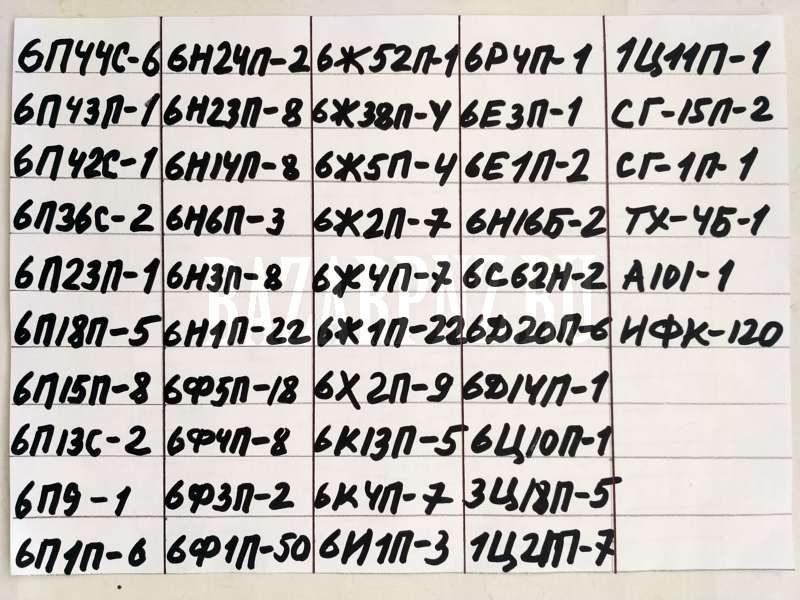 6П44С-6 6Н24П-2 6Ж52П-1 6Р4П-1 1Ц11П-1
6П43П-1 6Н23П-8 6Ж38П-У 6Е3П-1 СГ-15П-2
6П42С-1 6Н14П-8 6Ж5П-4 6Е1П-2 СГ-1П-1
6П36С-2 6Н6П-3 6Ж2П-7 6Н16Б-2 ТХ-4Б-1
6П23П-1 6Н3П-8 6Ж4П-7 6С62Н-2 А101-1
6П18П-5 6Н1П-22 6Ж1П-22 6Д20П-6 ИФК-120
6П15П-8 6Ф5П-18 6Х2П-9 6Д14П-1
6П13С-2 6Ф4П-8 6К13П-5 6Ц10П-1
6П9-1 6Ф3П-2 6К4П-7 3Ц18П-5
6П1П-6 6Ф1П-50 6И1П-3 1Ц21П-7